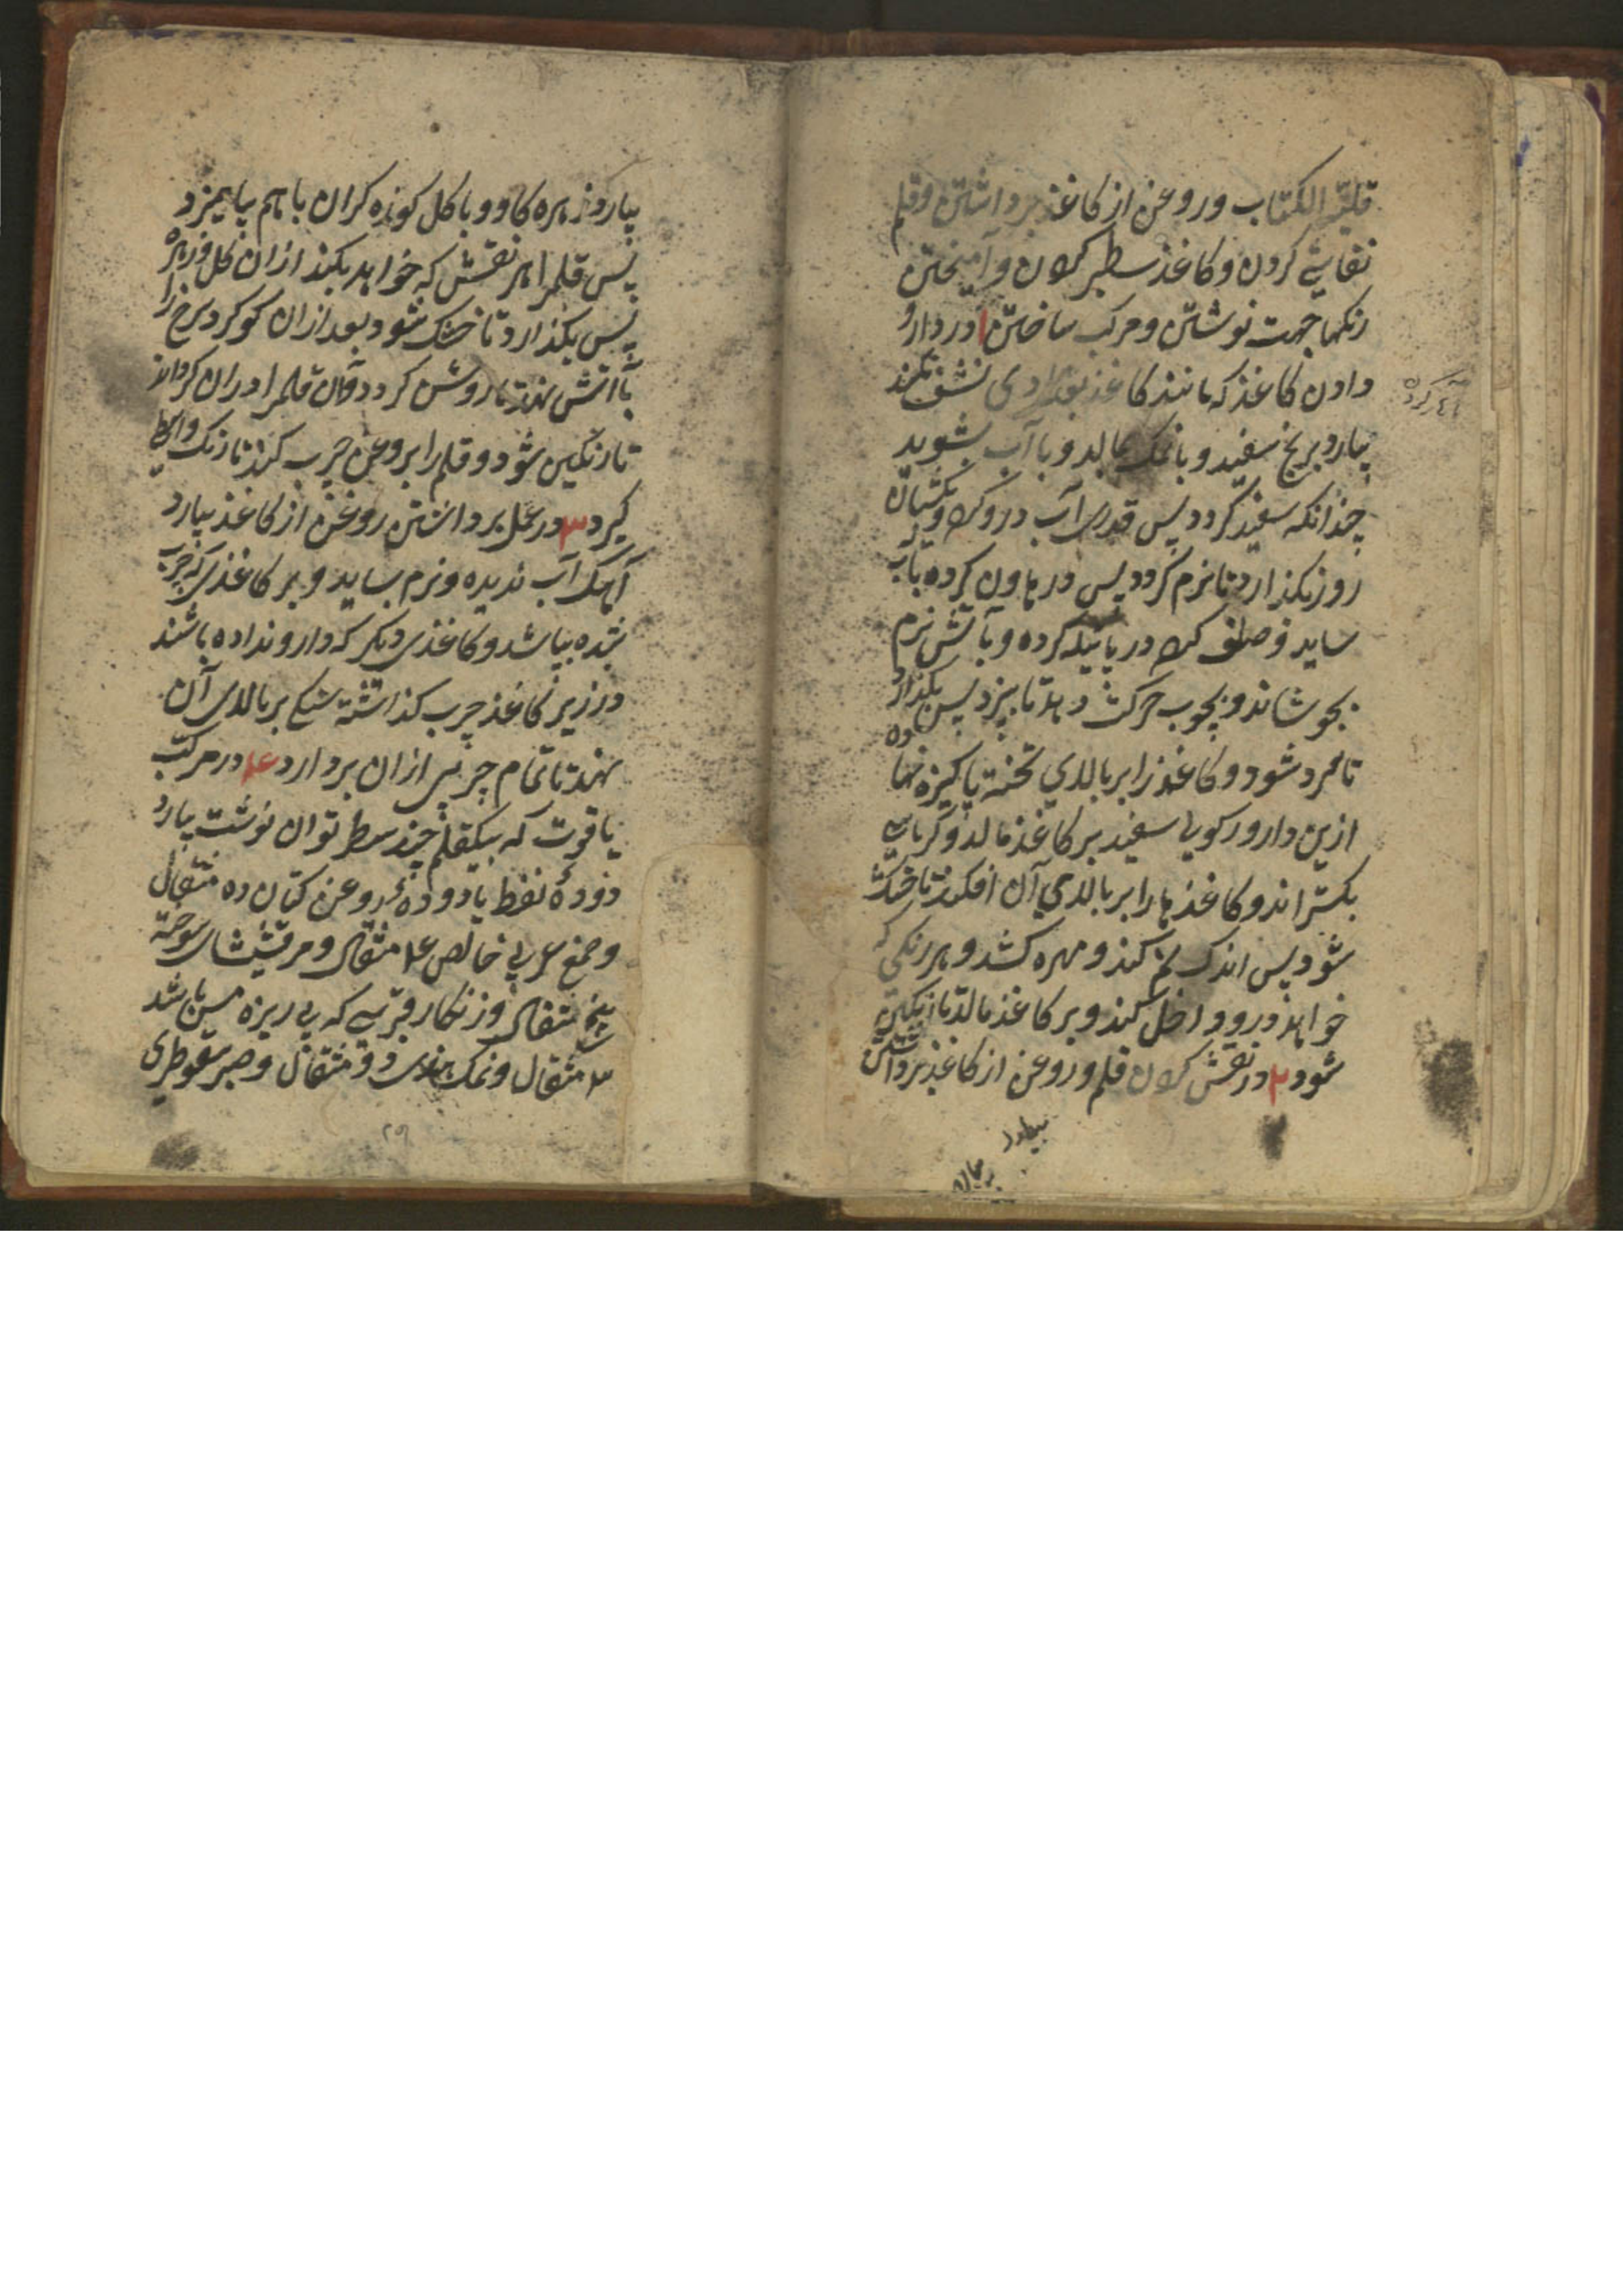 قلیة الکتاب و روغن از کاغذ برداشتن و قلم
نقاشی کردن و کاغذ سطبر کردن و آمیختن
رنکها جهت نوشتن و مرکب ساختن ۱ در دارو
دادن کاغذ که مانند کاغذ بغدادی نشف نکند
بیارد برنج سفید و با نمک بمالد و با آب بشوید
چندانکه سفید کردد پس قدری آب درو کند و یکشبان
روز بکذارد تا نرم کردد پس در هاون کرده بآب
ساید و صاف کند در پاتیله کرده و بآتش نرم
بجوشاند و بچوب حرکت دهد تا بپزد پس بکذارد
تا سرد شود و کاغذ را بر بالای تخته پاکیزه نهاده
ازین دارو رکویی سفید بر کاغذ مالد و کرباسی
بکستراند و کاغذ ها را بر بالای آن افکند تا خشک
شود پس اندک نم کند و مهره کشد و هر رنکی که
خواهد درو داخل کند و بر کاغذ مالد تا رنکین
شود ۲ در نقش کردن قلم و روغن از کاغذ برداشتن
بیارد
بیارد زهره کاو و با کل کوزه کران با هم بیامیزد
پس قلم را هر نقش که خواهد بکند ازان کل و زهره
پس بکذارد تا خشک شود بعد ازان کوکرد سرخ را
بآتش نهد تا روشن کردد و آن قلم را دران کرداند
تا رنکین شود و قلم را بروغن چرب کند تا رنک
کیرد ۳ در عمل برداشتن روغن از کاغذ بیارد
آهک آب ندیده و نرم بساید و بر کاغذی که چرب
شده بپاشد و کاغذی دیکر که دارو نداده باشند
در زیر کاغذ چرب کذاشته سنکی بر بالای آن
نهند تا تمام چربی ازان بردارد ۴ در مرکب
یاقوت که بیکقلم چند سطر توان نوشت بیارد
دودۀ نفط یا دودۀ روغن کتان ده مثقال
و صمغ عربی خالص ۴ مثقال و مرقشیشای سوخته
پنج مثقال و زنکار قبرسی که بی ریزه مس باشد
۳ مثقال و نمک هندی دو مثقال و صبر سقوطری